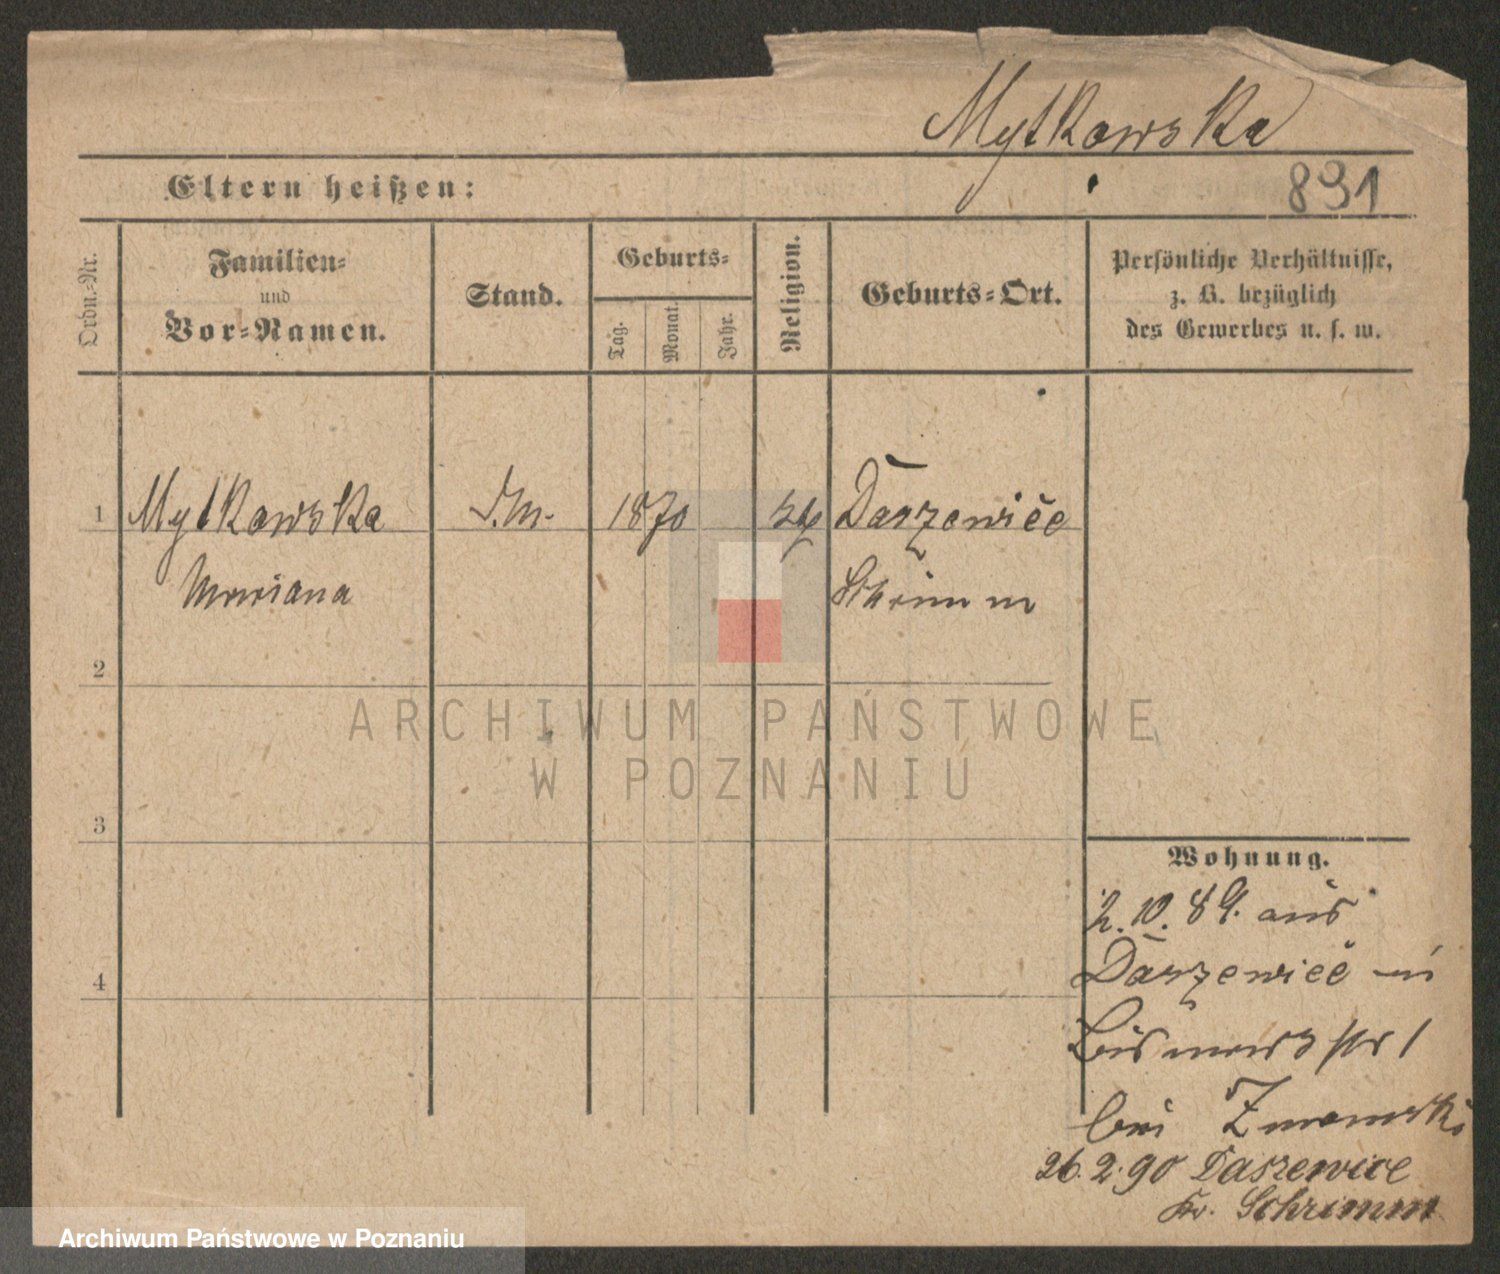 Mytkowska
Eltern heißen:
891
Ordn.-Nr.
Familien-
und
Vor-Namen.
Stand.
Geburts-
Tag.
Monat.
Jahr.
Religion.
Geburts-Ort.
Persönliche Verhältnisse,
z. B. bezüglich
des Gewerbes u. s. w.
1
Mytkowska
1870
Daszewice
Mariana
Schrimm
2
ARCHIWUM PAŃSTWOWE
W POZNANIU
3
Wohnung.
2.10.89. aus
4
Daszewice in
Bismarckstr 1
bei
26.2.90 Daszewice
Kr. Schrimm
Archiwum Państwowe w Poznaniu